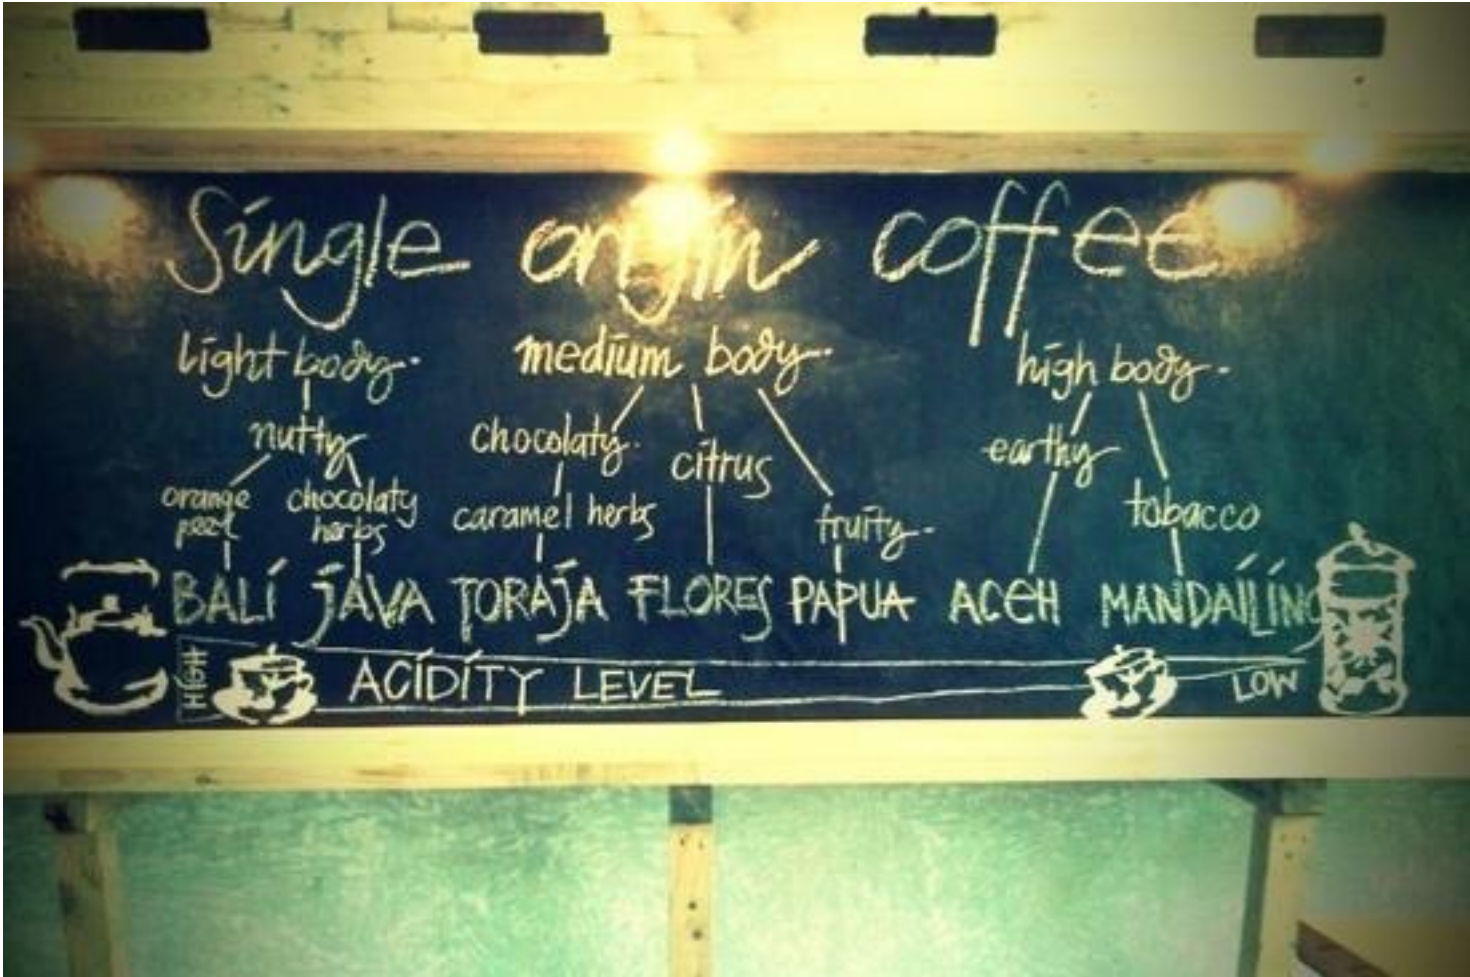 Single origin coffee
light body. medium body. high body.
nutty chocolaty. citrus earthy
orange peel chocolaty herbs caramel herbs fruity. tobacco
BALI JAVA TORAJA FLORES PAPUA ACEH MANDAILING
HIGH ACIDITY LEVEL LOW